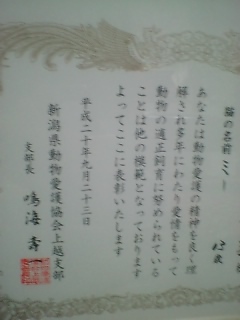 猫の名前 ミー
あなたは動物愛護の精神を良く理
解され多年にわたり愛情をもって
動物の適正飼育に努められている
ことは他の模範となっております
よってここに表彰いたします
平成二十年九月二十三日
新潟県動物愛護協会上越支部
支部長 鳴海 寿